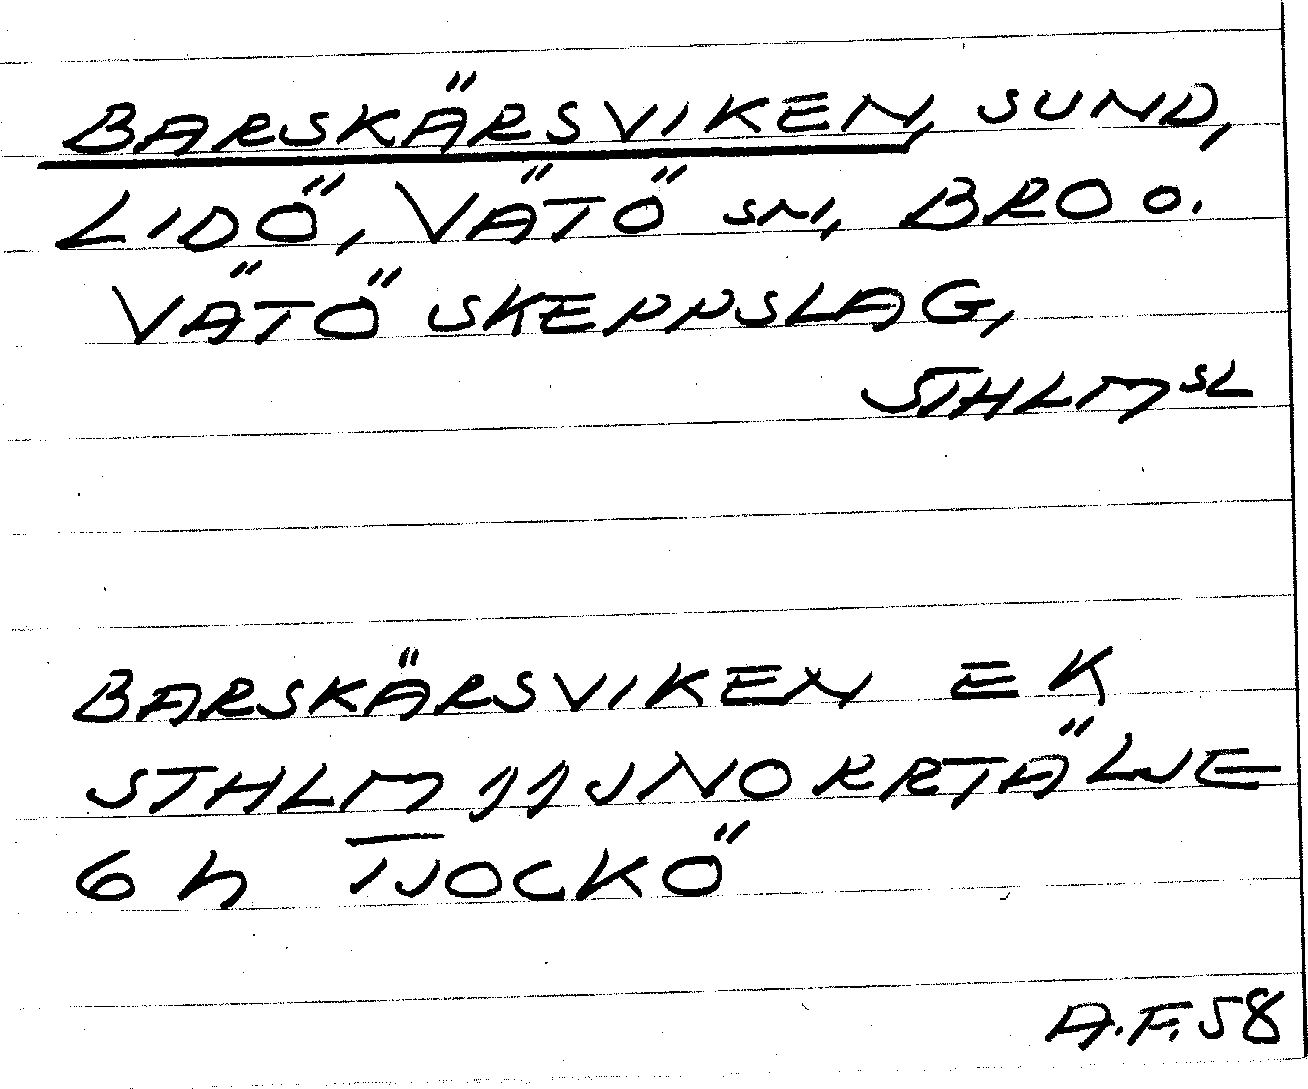 BARSKÄRSVIKEN, SUND,
LIDÖ, VÄTÖ SN, BRO O.
VÄTÖ SKEPPSLAG,
STHLMSL
BARSKÄRSVIKEN EK
STHLM 11J NORRTÄLJE
6h TJOCKÖ
A.F. 58